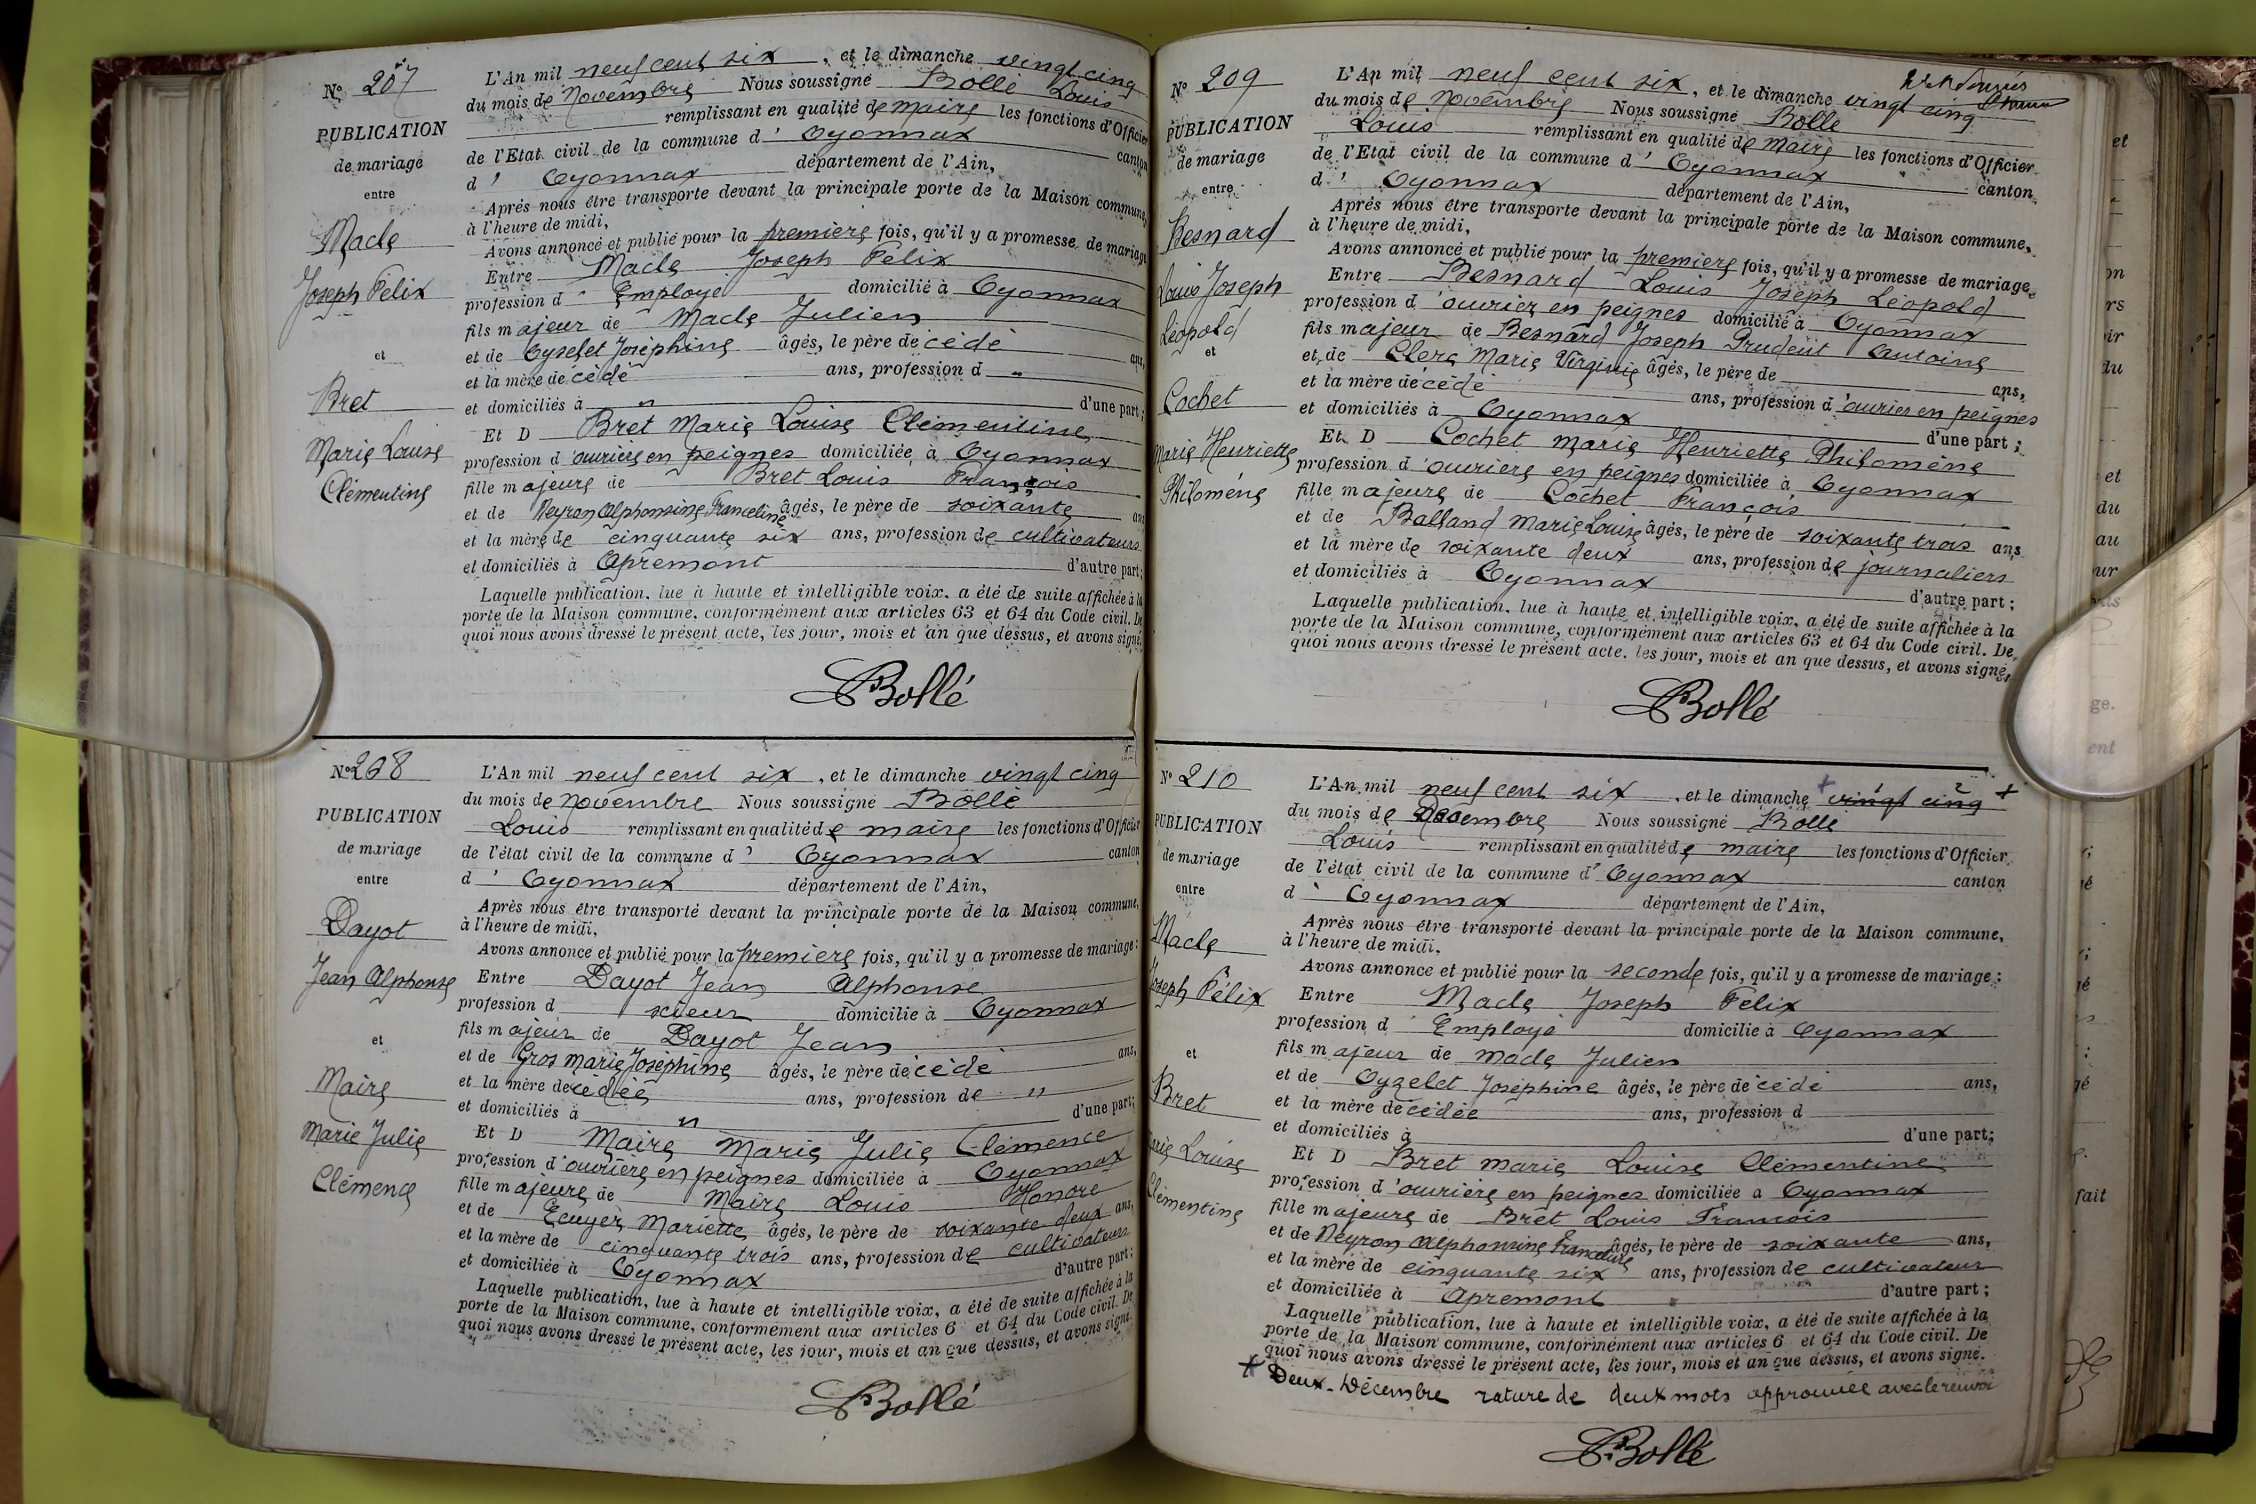 Nº 207
PUBLICATION
de mariage
entre
Macle
Joseph Félix
et
Bret
Marie Louise
Clémentine
L'An mil neuf cent six, et le dimanche vingt cinq
du mois de Novembre Nous soussigné Bollé Louis
remplissant en qualité de maire les fonctions d'Officier
de l'Etat civil de la commune d' Oyonnax canton
d' Oyonnax département de l'Ain,
Après nous être transporté devant la principale porte de la Maison commune,
à l'heure de midi,
Avons annoncé et publié pour la première fois, qu'il y a promesse de mariage
Entre Macle Joseph Félix
profession d' Employé domicilié à Oyonnax
fils majeur de Macle Julien
et de Oyselet Joséphine âgés, le père décédé ans,
et la mère décédé ans, profession d "
et domiciliés à " d'une part;
Et D Bret Marie Louise Clémentine
profession d'ouvrière en peignes domiciliée à Oyonnax
fille majeure de Bret Louis François
et de Neyron Alphonsine Franceline âgés, le père de soixante ans
et la mère de cinquante six ans, profession de cultivateurs
et domiciliés à Apremont d'autre part;
Laquelle publication, lue à haute et intelligible voix, a été de suite affichée à la
porte de la Maison commune, conformément aux articles 63 et 64 du Code civil. De
quoi nous avons dressé le présent acte, les jour, mois et an que dessus, et avons signé.
Bollé
Nº 208
PUBLICATION
de mariage
entre
Dayot
Jean Alphonse
et
Maire
Marie Julie
Clémence
L'An mil neuf cent six, et le dimanche vingt cinq
du mois de Novembre Nous soussigné Bollé
Louis remplissant en qualité de maire les fonctions d'Officier
de l'état civil de la commune d' Oyonnax canton
d' Oyonnax département de l'Ain,
Après nous être transporté devant la principale porte de la Maison commune,
à l'heure de midi,
Avons annoncé et publié pour la première fois, qu'il y a promesse de mariage:
Entre Dayot Jean Alphonse
profession d scieur domicilié à Oyonnax
fils majeur de Dayot Jean
et de Gros Marie Joséphine âgés, le père décédé ans,
et la mère décédée ans, profession de "
et domiciliés à " d'une part;
Et D Maire Marie Julie Clémence
profession d'ouvrière en peignes domiciliée à Oyonnax
fille majeure de Maire Louis Honoré
et de Ecuyer Mariette âgés, le père de soixante deux ans,
et la mère de cinquante trois ans, profession de cultivateurs
et domiciliée à Oyonnax d'autre part;
Laquelle publication, lue à haute et intelligible voix, a été de suite affichée à la
porte de la Maison commune, conformément aux articles 6 et 64 du Code civil. De
quoi nous avons dressé le présent acte, les jour, mois et an que dessus, et avons signé.
Bollé
Nº 209
PUBLICATION
de mariage
entre
Besnard
Louis Joseph
Léopold
et
Cochet
Marie Henriette
Philomène
L'An mil neuf cent six, et le dimanche vingt cinq
du mois de Novembre Nous soussigné Bollé
Louis remplissant en qualité de maire les fonctions d'Officier
de l'Etat civil de la commune d' Oyonnax canton
d' Oyonnax département de l'Ain,
Après nous être transporté devant la principale porte de la Maison commune,
à l'heure de midi,
Avons annoncé et publié pour la première fois, qu'il y a promesse de mariage
Entre Besnard Louis Joseph Léopold
profession d'ouvrier en peignes domicilié à Oyonnax
fils majeur de Besnard Joseph Prudent Antoine
et de Clerc Marie Virginie âgés, le père de ans,
et la mère décédé ans, profession d'ouvrier en peignes
et domiciliés à Oyonnax d'une part;
Et D Cochet Marie Henriette Philomène
profession d'ouvrière en peignes domiciliée à Oyonnax
fille majeure de Cochet François
et de Balland Marie Louise âgés, le père de soixante trois ans
et la mère de soixante deux ans, profession de journaliers
et domiciliés à Oyonnax d'autre part;
Laquelle publication, lue à haute et intelligible voix, a été de suite affichée à la
porte de la Maison commune, conformément aux articles 63 et 64 du Code civil. De
quoi nous avons dressé le présent acte, les jour, mois et an que dessus, et avons signé,
Bollé
Nº 210
PUBLICATION
de mariage
entre
Macle
Joseph Félix
et
Bret
Marie Louise
Clémentine
L'An mil neuf cent six, et le dimanche + vingt cinq +
du mois de Décembre Nous soussigné Bollé
Louis remplissant en qualité de maire les fonctions d'Officier
de l'état civil de la commune d' Oyonnax canton
d' Oyonnax département de l'Ain,
Après nous être transporté devant la principale porte de la Maison commune,
à l'heure de midi,
Avons annoncé et publié pour la seconde fois, qu'il y a promesse de mariage:
Entre Macle Joseph Félix
profession d' Employé domicilié à Oyonnax
fils majeur de Macle Julien
et de Oyzelet Joséphine âgés, le père décédé ans,
et la mère décédée ans, profession d
et domiciliés à d'une part;
Et D Bret Marie Louise Clémentine
profession d'ouvrière en peignes domiciliée à Oyonnax
fille majeure de Bret Louis François
et de Neyron Alphonsine Franceline âgés, le père de soixante ans,
et la mère de cinquante six ans, profession de cultivateur
et domiciliée à Apremont d'autre part;
Laquelle publication, lue à haute et intelligible voix, a été de suite affichée à la
porte de la Maison commune, conformément aux articles 6 et 64 du Code civil. De
quoi nous avons dressé le présent acte, les jour, mois et an que dessus, et avons signé.
+ Deux Décembre rature de deux mots approuvée avec le renvoi
Bollé